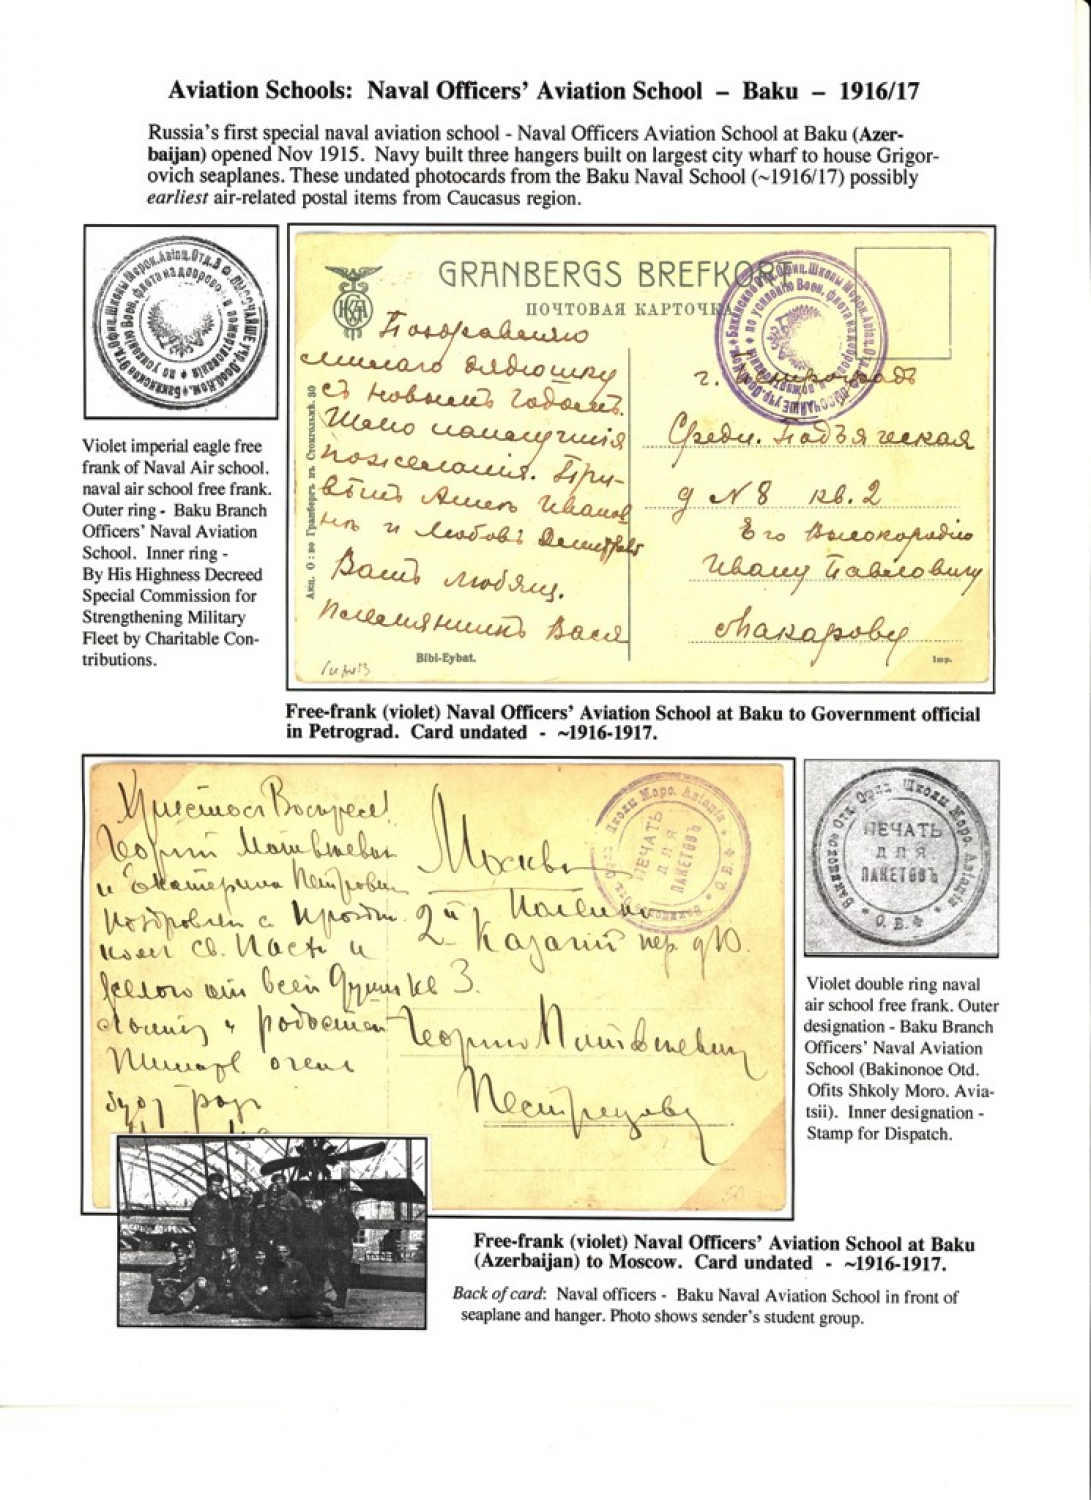 Aviation Schools: Naval Officers' Aviation School – Baku – 1916/17
Russia's first special naval aviation school - Naval Officers Aviation School at Baku (Azer-
baijan) opened Nov 1915. Navy built three hangers built on largest city wharf to house Grigor-
ovich seaplanes. These undated photocards from the Baku Naval School (~1916/17) possibly
earliest air-related postal items from Caucasus region.
Violet imperial eagle free
frank of Naval Air school.
naval air school free frank.
Outer ring - Baku Branch
Officers' Naval Aviation
School. Inner ring -
By His Highness Decreed
Special Commission for
Strengthening Military
Fleet by Charitable Con-
tributions.
GRANBERGS BREFKORT
ПОЧТОВАЯ КАРТОЧКА
Поздравляю
милаго дядюшку
съ новымъ годомъ.
Шлю наилучшія
пожеланія. При-
вѣтъ Аннѣ Иванов
нѣ и Любовь
Вашъ любящ.
племянникъ Вася
г. Петроградъ
Средн. Подъяческая
д № 8 кв. 2
Его Высокородію
Ивану Павловичу
Макарову
Акц. О:во Гранбергъ въ Стокгольмѣ. 30
Bibi-Eybat.
Imp.
Free-frank (violet) Naval Officers' Aviation School at Baku to Government official
in Petrograd. Card undated - ~1916-1917.
Христосъ Воскресе!
Георгій Матвѣевич
и Екатерина Петровна
Москва
2й Казачій пер д 10.
кв 3.
Георгію Матвѣевичу
Пестрецову
ПЕЧАТЬ
ДЛЯ
ПАКЕТОВЪ
Бакинское Отд. Офиц. Школы Морс. Авіаціи
О. В. Ф.
ПЕЧАТЬ
ДЛЯ
ПАКЕТОВЪ
Violet double ring naval
air school free frank. Outer
designation - Baku Branch
Officers' Naval Aviation
School (Bakinonoe Otd.
Ofits Shkoly Moro. Avia-
tsii). Inner designation -
Stamp for Dispatch.
Free-frank (violet) Naval Officers' Aviation School at Baku
(Azerbaijan) to Moscow. Card undated - ~1916-1917.
Back of card: Naval officers - Baku Naval Aviation School in front of
seaplane and hanger. Photo shows sender's student group.